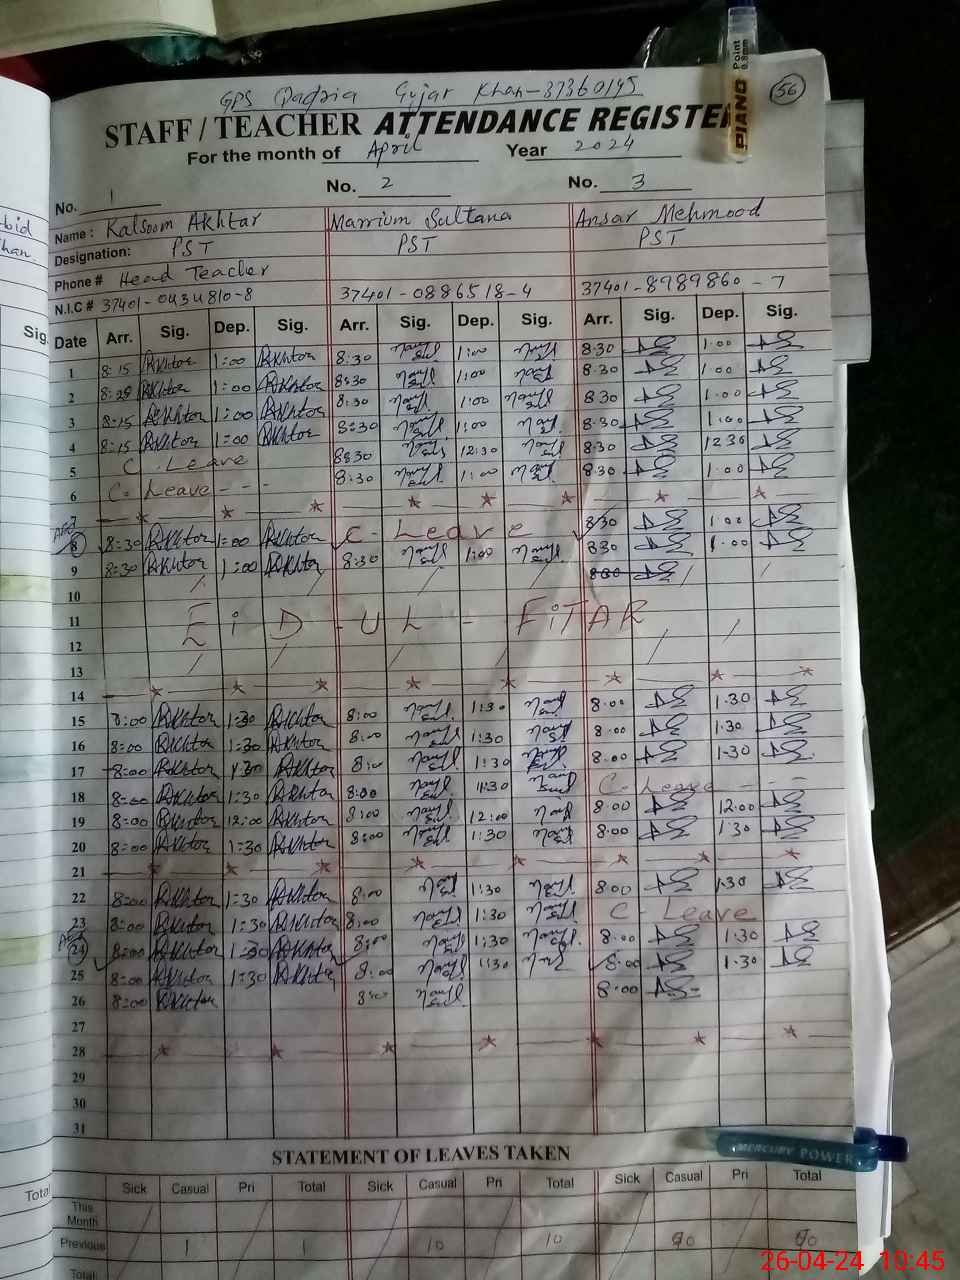 56
GPS Gujar Khan-37360145
STAFF / TEACHER ATTENDANCE REGISTER
For the month of April Year 2024
No. 1 No. 2 No. 3
Name : Kalsoom Akhtar Marrium Sultana Ansar Mehmood
Designation: PST PST PST
Phone # Head Teacher
N.I.C # 37401-0434810-8 37401-0886518-4 37401-8989860-7
Date Arr. Sig. Dep. Sig. Arr. Sig. Dep. Sig. Arr. Sig. Dep. Sig.
1 8:15 Akhtar 1:00 Akhtar 8:30 1:00 8:30 1:00
2 Akhtar 1:00 Akhtar 8:30 1:00 8:30 1:00
3 8:15 Akhtar 1:00 Akhtar 8:30 1:00 8:30 1:00
4 8:15 Akhtar 1:00 Akhtar 8:30 1:00 8:30 1:00
5 C. Leave 8:30 12:30 8:30 12:30
6 C- Leave - - - 8:30 1:00 8:30 1:00
7
8 8:30 Akhtar 1:00 Akhtar C- Leave 8:30 1:00
9 8:30 Akhtar 1:00 Akhtar 8:30 1:00 8:30 1:00
10 8:30
11 EiD - UL - FiTAR
12
13
14
15 8:00 Akhtar 1:30 Akhtar 8:00 1:30 8:00 1:30
16 8:00 Akhtar 1:30 Akhtar 8:00 1:30 8:00 1:30
17 8:00 Akhtar 1:30 Akhtar 8:00 1:30 8:00 1:30
18 8:00 Akhtar 1:30 Akhtar 8:00 1:30 C- Leave - - -
19 8:00 Akhtar 12:00 Akhtar 8:00 12:00 8:00 12:00
20 8:00 Akhtar 1:30 Akhtar 8:00 1:30 8:00 1:30
21
22 8:00 Akhtar 1:30 Akhtar 8:00 1:30 8:00 1:30
23 8:00 Akhtar 1:30 Akhtar 8:00 1:30 C- Leave
24 8:00 Akhtar 1:30 Akhtar 8:00 1:30 8:00 1:30
25 8:00 Akhtar 1:30 Akhtar 8:00 1:30 8:00 1:30
26 8:00 Akhtar 8:00 8:00
27
28
29
30
31
STATEMENT OF LEAVES TAKEN
Sick Casual Pri Total Sick Casual Pri Total Sick Casual Pri Total
This Month
Previous 1 1 10 10
Total
Sig.
Total
PIANO Point 0.8mm
MERCURY POWER
26-04-24 10:45